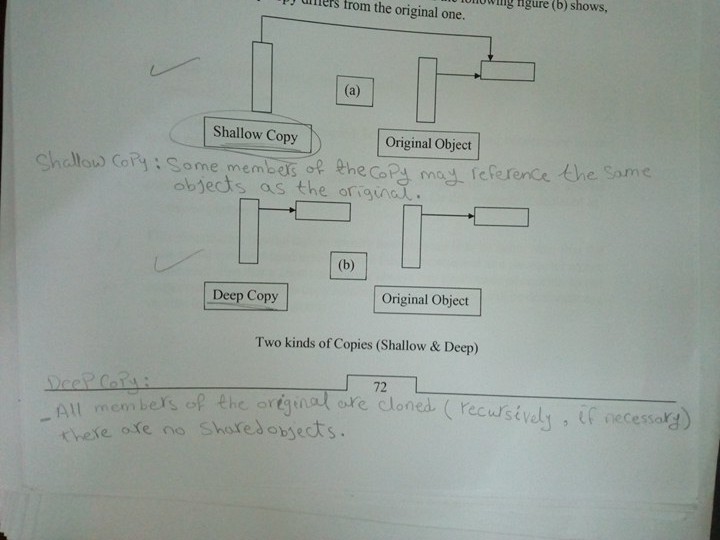 differs from the original one.
following figure (b) shows,
(a)
Shallow Copy
Original Object
Shallow Copy : Some members of the Copy may reference the same
objects as the original.
(b)
Deep Copy
Original Object
Two kinds of Copies (Shallow & Deep)
72
Deep Copy :
- All members of the original are cloned ( recursively , if necessary)
there are no Shared objects.